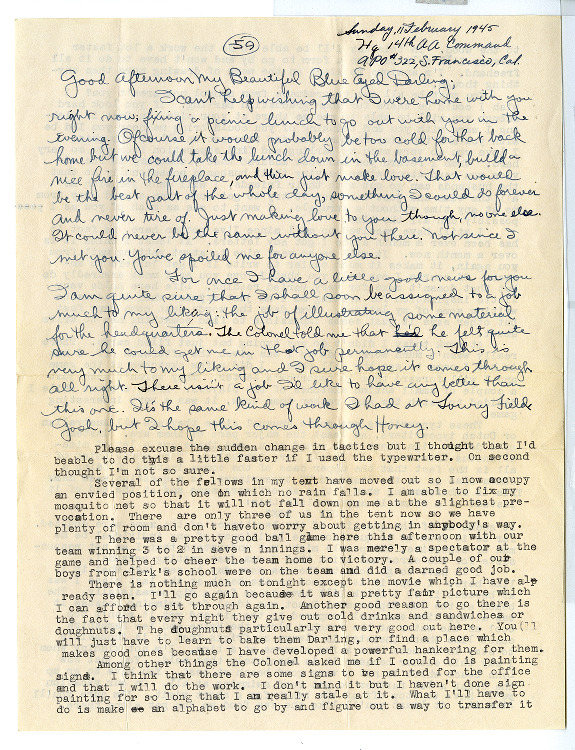 59
Sunday, 11 February 1945
Hq 14th A.A. Command
APO #322, S. Francisco, Cal.
Good Afternoon My Beautiful Blue Eyed Darling;
I can't help wishing that I were home with you
right now, fixing a picnic lunch to go out with you in the
evening. Of course it would probably be too cold for that back
home but we could take the lunch down in the basement, build a
nice fire in the fireplace, and then just make love. That would
be the best part of the whole day, something I could do forever
and never tire of. Just making love to you though, no one else.
It could never be the same without you there. Not since I
met you. You've spoiled me for anyone else.
For once I have a little good news for you
I am quite sure that I shall soon be assigned to a job
much to my liking: the job of illustrating some material
for the headquarters. The Colonel told me that he felt quite
sure he could get me in that job permanently. This is
very much to my liking and I sure hope it comes through
all right. There isn't a job I'd like to have any better than
this one. It's the same kind of work I had at Lowry Field.
Gosh, but I hope this comes through Honey.
Please excuse the sudden change in tactics but I thought that I'd
beable to do this a little faster if I used the typewriter. On second
thought I'm not so sure.
Several of the fellows in my tent have moved out so I now occupy
an envied position, one on which no rain falls. I am able to fix my
mosquito net so that it will not fall down on me at the slightest pre-
vocation. There are only three of us in the tent now so we have
plenty of room and don't haveto worry about getting in anybody's way.
T here was a pretty good ball game here this afternoon with our
team winning 3 to 2 in seve n innings. I was merely a spectator at the
game and helped to cheer the team home to victory. A couple of our
boys from clerk's school were on the team and did a darned good job.
There is nothing much on tonight except the movie which I have al-
ready seen. I'll go again because it was a pretty fair picture which
I can afford to sit through again. Another good reason to go there is
the fact that every night they give out cold drinks and sandwiches or
doughnuts. T he doughnuts particularly are very good out here. You(ll
will just have to learn to bake them Darling, or find a place which
makes good ones because I have developed a powerful hankering for them.
Among other things the Colonel asked me if I could do is painting
signs. I think that there are some signs to be painted for the office
and that I will do the work. I don't mind it but I haven't done sign
painting for so long that I am really stale at it. What I'll have to
do is make an alphabet to go by and figure out a way to transfer it